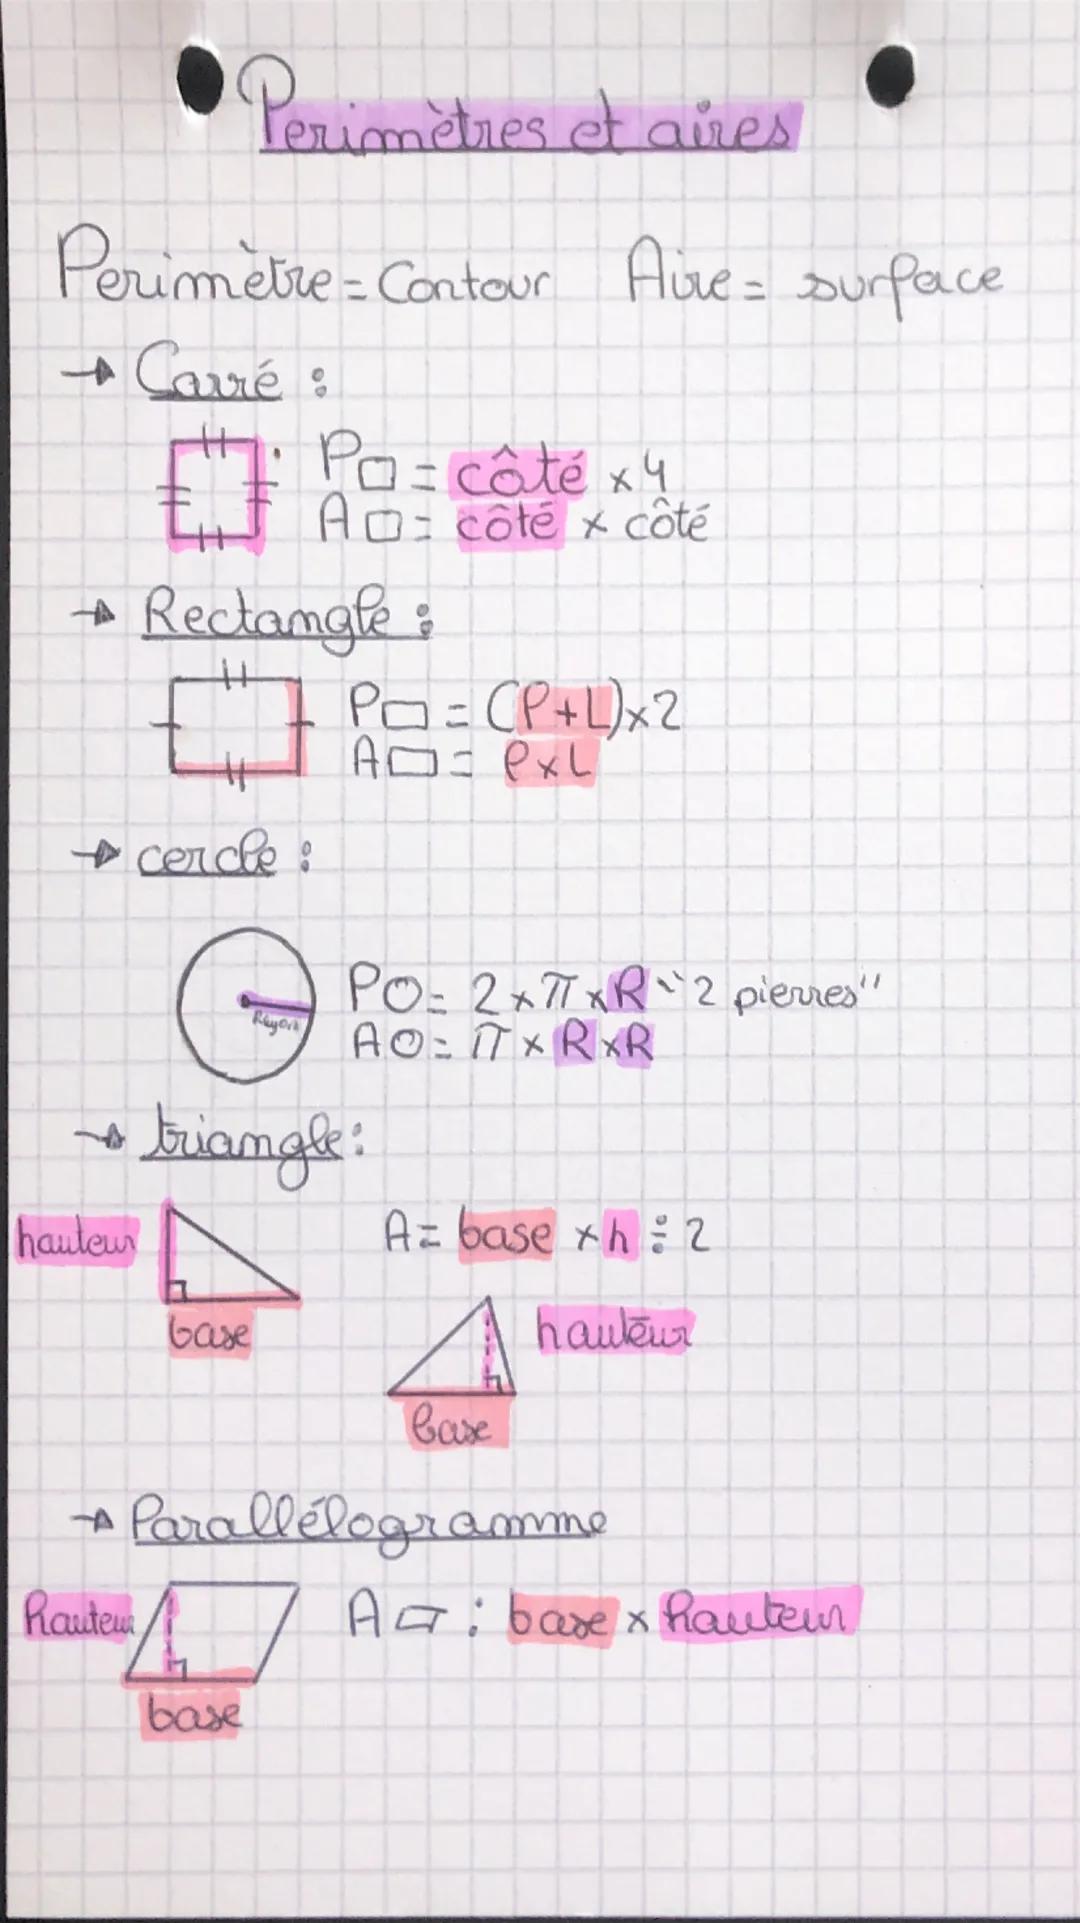 Perimètres et aires
Perimètre = Contour Aire = surface
→ Carré :
P□ = côté × 4
A□ = côté × côté
→ Rectangle :
P▭ = (l+L)×2
A▭ = l×L
→ cercle :
Rayon
PO = 2 × π × R "2 pierres"
AO = π × R × R
→ triangle :
hauteur
A = base × h ÷ 2
base
hauteur
base
→ Parallélogramme
hauteur
A▱ : base × hauteur
base